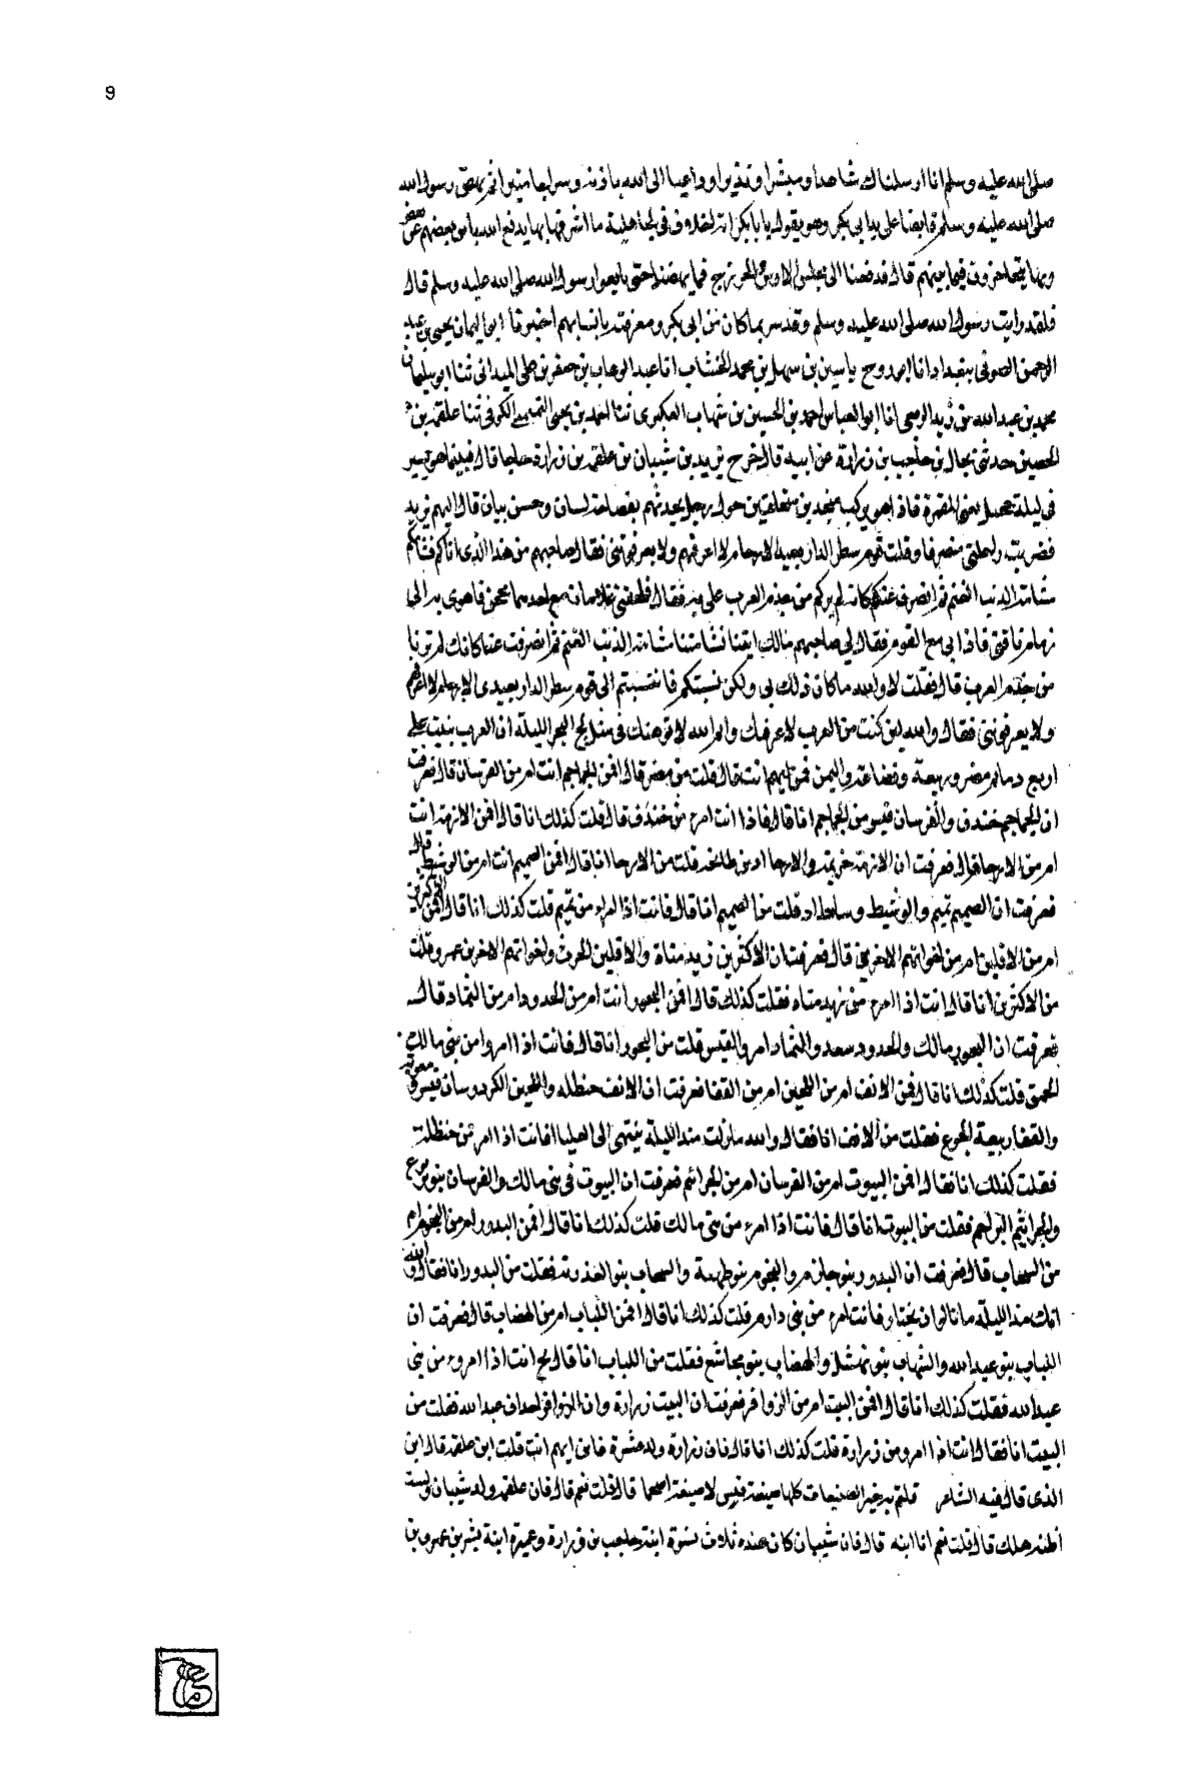 9
صلى الله عليه وسلم انا ارسلناك شاهدا ومبشرا ونذيرا وداعيا الى الله باذنه وسراجا منيرا ثم نهض رسول الله
صلى الله عليه وسلم قابضا على يد ابي بكر وهو يقول يا بابكر اية اخلاق في الجاهلية ما اشرفها بها يدفع الله باس بعضهم عن بعض
وبها يتحاجزون فيما بينهم قال فدفعنا الى مجلس الاوس والخزرج فما نهضنا حتى بايعوا رسول الله صلى الله عليه وسلم قال
فلقد رايت رسول الله صلى الله عليه وسلم وقد سر بما كان من ابي بكر ومعرفته بانسابهم اخبرنا ابو اليمان يحيى بن عبد
الرحمن الصوفي ببغداد انا ابو روح ياسين بن سهل بن محمد الخشاب انا عبد الوهاب بن جعفر بن علي الميداني ثنا ابو سليمان
محمد بن عبد الله بن زيد الربعي انا ابو العباس احمد بن الحسين بن شهاب العكبري ثنا احمد بن يحيى التميمي الكوفي ثنا علقمة بن
الحصين حدثني بحال بن حاجب بن زرارة عن ابيه قال خرج يزيد بن شيبان بن علقمة بن زرارة حاجا قال فبينما هو يسير
في ليلة مقمرة فاذا هو بركب متحلقين حول رجل يحدثهم بفصاحة لسان وحسن بيان قال اليهم يزيد
فضربت راحلتي منصرفا وقلت قوم سطر الدار بعيد الارحام لا اعرفهم ولا يعرفونني فقال صاحبهم من هذا الذي اتاكم فشامكم
مشامة الذيب الغنم ثم انصرف عنكم كانه لم يركم من جذم العرب على يد فقال فلحقني غلامان مع احدهما محجن فاهوى به الى
زمام ناقتي فاذا بي مع القوم فقال لي صاحبهم مالك اتيتنا فشاممتنا مشامة الذيب الغنم ثم انصرفت عنا كانك لم ترنا
من جذم العرب قال فقلت لا والله ما كان ذلك بي ولكن نسبتكم فانتسبتم الى قوم سطر الدار بعيدي الارحام لا اعرفهم
ولا يعرفونني فقال والله لئن كنت من العرب لاعرفنك وايم الله لاتوهنك في مثل لج البحر الليلة ان العرب بنيت على
اربع دعائم مضر وربيعة وقضاعة واليمن فمن ايهم انت قال قلت من مضر قال افمن الجماجم انت ام من الفرسان قال فعرفت
ان الجماجم خندف والفرسان قيس من الجماجم انا قال فاذا انت امرء من خندف قال قلت كذلك انا قال افمن الازمة انت
ام من الارحا قال فعرفت ان الازمة خزيمة والارحا اد بن طابخة قلت من الارحا انا قال افمن الصميم انت ام من الوشيظ قال
فعرفت ان الصميم تميم والوشيظ وسايط اد قلت من الصميم انا قال فانت اذا امرء من تميم قلت كذلك انا قال افمن الاكثرين
ام من الاقلين ام من اخواتهم الاخرين قال فعرفت ان الاكثرين زيد مناة والاقلين الحرث واخواتهم الاخرين عمرو قلت
من الاكثرين انا قال انت اذا امرء من زيد مناه فقلت كذلك قال افمن البحور انت ام من الحدود ام من الثماد قال
فعرفت ان البحور مالك والحدود سعد والثماد امرو القيس قلت من البحور انا قال فانت اذا امروا من بني مالك
الحمق قلت كذلك انا قال افمن الانف ام من اللحيين ام من القفا فعرفت ان الانف حنظله واللحيين الكردوسان قيس ومعوية
والقفا ربيعة الجوع فقلت من الانف انا فقال والله مازلت منذ الليلة ينتهى الى العليا فانت اذا امرء من حنظلة
فقلت كذلك انا فقال افمن البيوت ام من الفرسان ام من الجراثيم فعرفت ان البيوت في بني مالك والفرسان بنو يربوع
والجراثيم البراجم فقلت من البيوت انا قال فانت اذا امرء من بني مالك قلت كذلك انا قال افمن البدور ام من النجوم ام
من السحاب قال فعرفت ان البدور بنو حازم والنجوم بنو طهية والسحاب بنو العدوية فقلت من البدور انا فقال والله
انك منذ الليلة ما تالوا ان تختار فانت امرء من بني دارم قلت كذلك انا قال افمن اللباب ام من الهضاب قال فعرفت ان
اللباب بنو عبد الله والشهاب بنو نهشل والهضاب بنو مجاشع فقلت من اللباب انا قال بخ انت اذا امروء من بني
عبد الله فقلت كذلك انا قال افمن البيت ام من الزوافر فعرفت ان البيت زرارة وان الزوافر احلاف عبد الله فقلت من
البيت انا فقال انت اذا امرو من زرارة قلت كذلك انا قال فان زرارة ولد عشرة فابن ايهم انت قلت ابن علقمة قال ابن
الذي قال فيه الشاعر قلتم به خير الضبعات كلها ضبيعة قيس لا ضبيعة اضجما قال قلت نعم قال فان علقمة ولد شيبان ولست
اظنه هلك قال قلت نعم انا ابنه قال فان شيبان كان عنده ثلاث نسوة ابنة حاجب بن زرارة وعميرة ابنة بشر بن عمرو بن